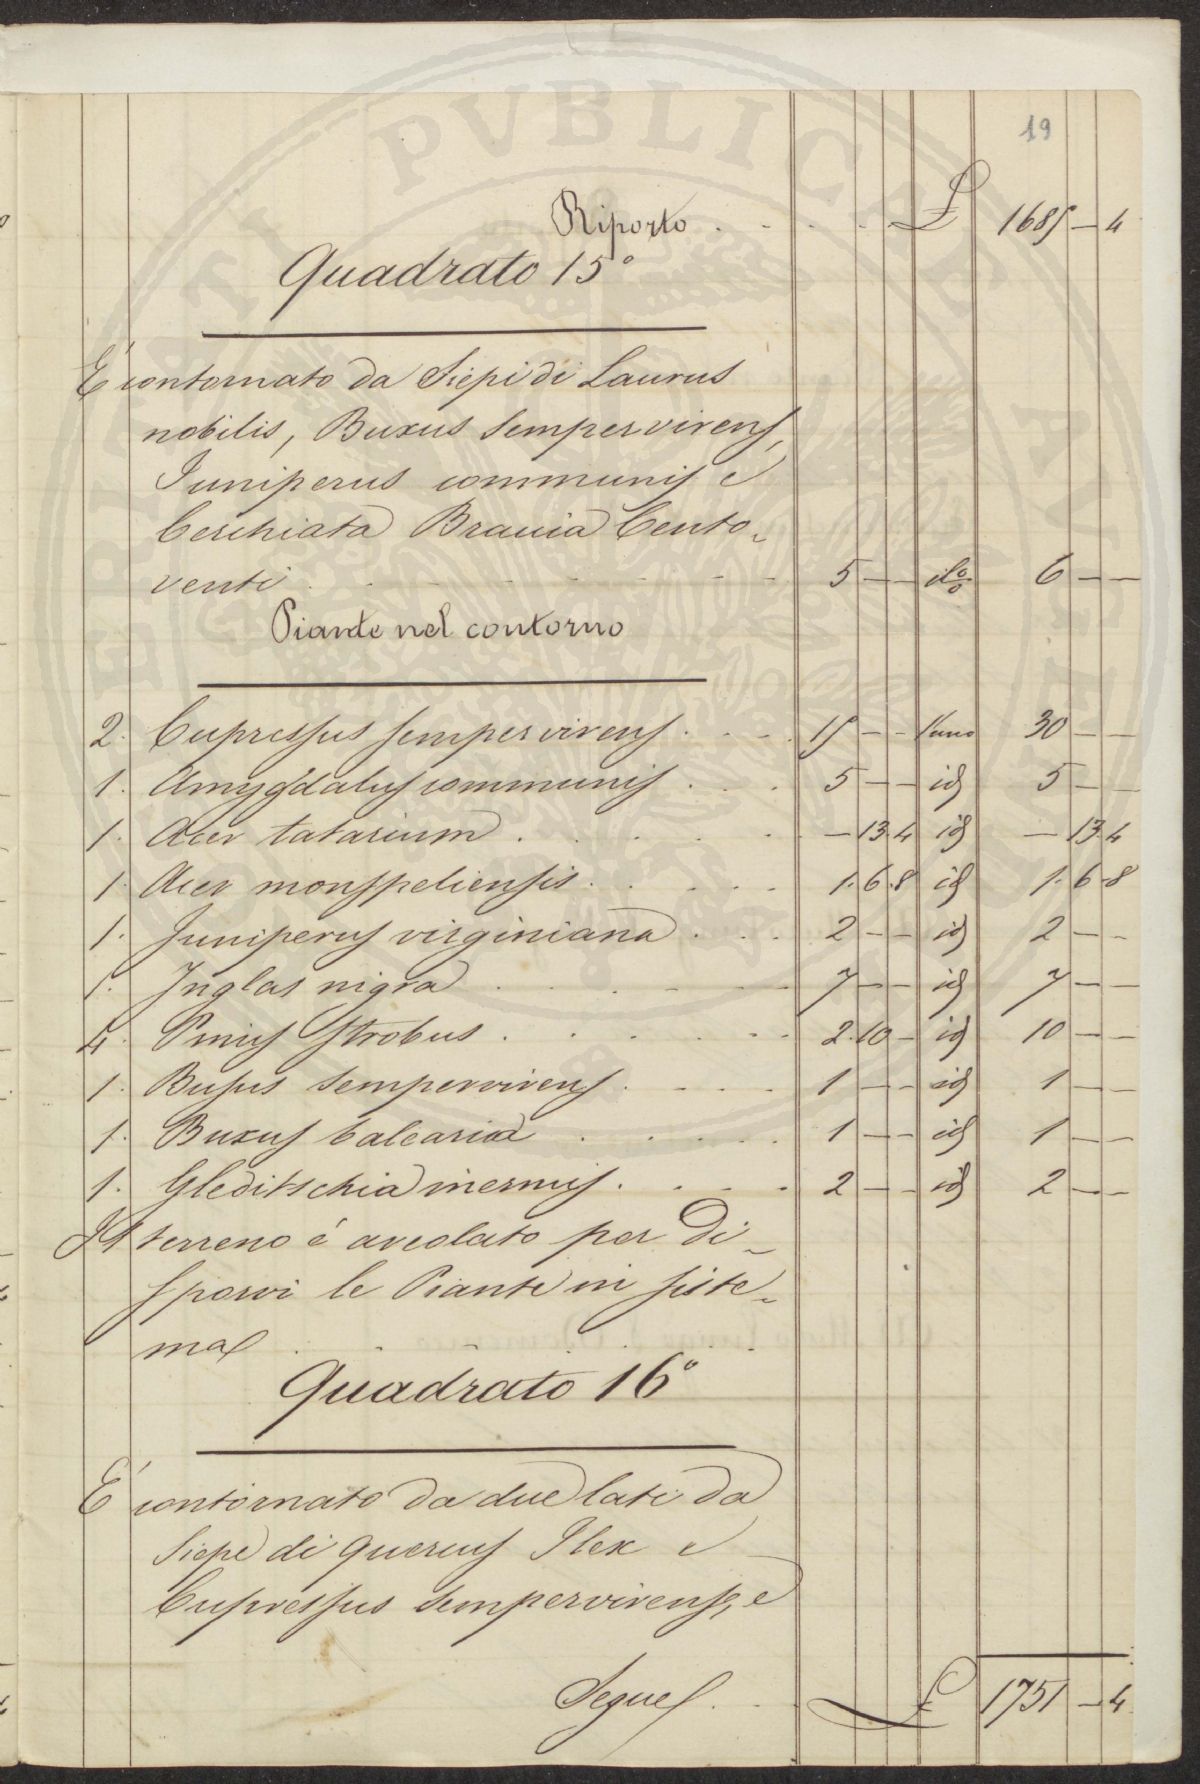 19
Riporto . . . . . £ 1685 — 4
Quadrato 15°
É contornato da Siepi di Laurus
nobilis, Buxus Sempervirens,
Juniperus communis e
Cerchiata Bravia Cento-
venti . . . . . 5 — — il % 6 — —
Piante nel contorno
2. Cupressus sempervirens . . . . 15 — — l'uno 30 — —
1. Amygdalus communis . . . 5 — — id 5 — —
1. Acer tataricum . . . . . — 13.4 id — 13.4
1. Acer monspeliensis . . . . . 1.6.8 id 1.6.8
1. Juniperus virginiana . . . 2 — — id 2 — —
1. Juglas nigra . . . . . 7 — — id 7 — —
4. Pinus Strobus . . . . . 2.10 — id 10 — —
1. Busus sempervirens . . . . 1 — — id 1 — —
1. Buxus balearica . . . . 1 — — id 1 — —
1. Gleditschia inermis . . . . 2 — — id 2 — —
Il terreno é areolato per Di-
sporvi le Piante in siste-
ma . . . . .
Quadrato 16°
É contornato da due lati da
Siepe di Quercus Ilex e
Cupressus sempervirens, e
Segue . . £ 1751 — 4
PVBLICAE